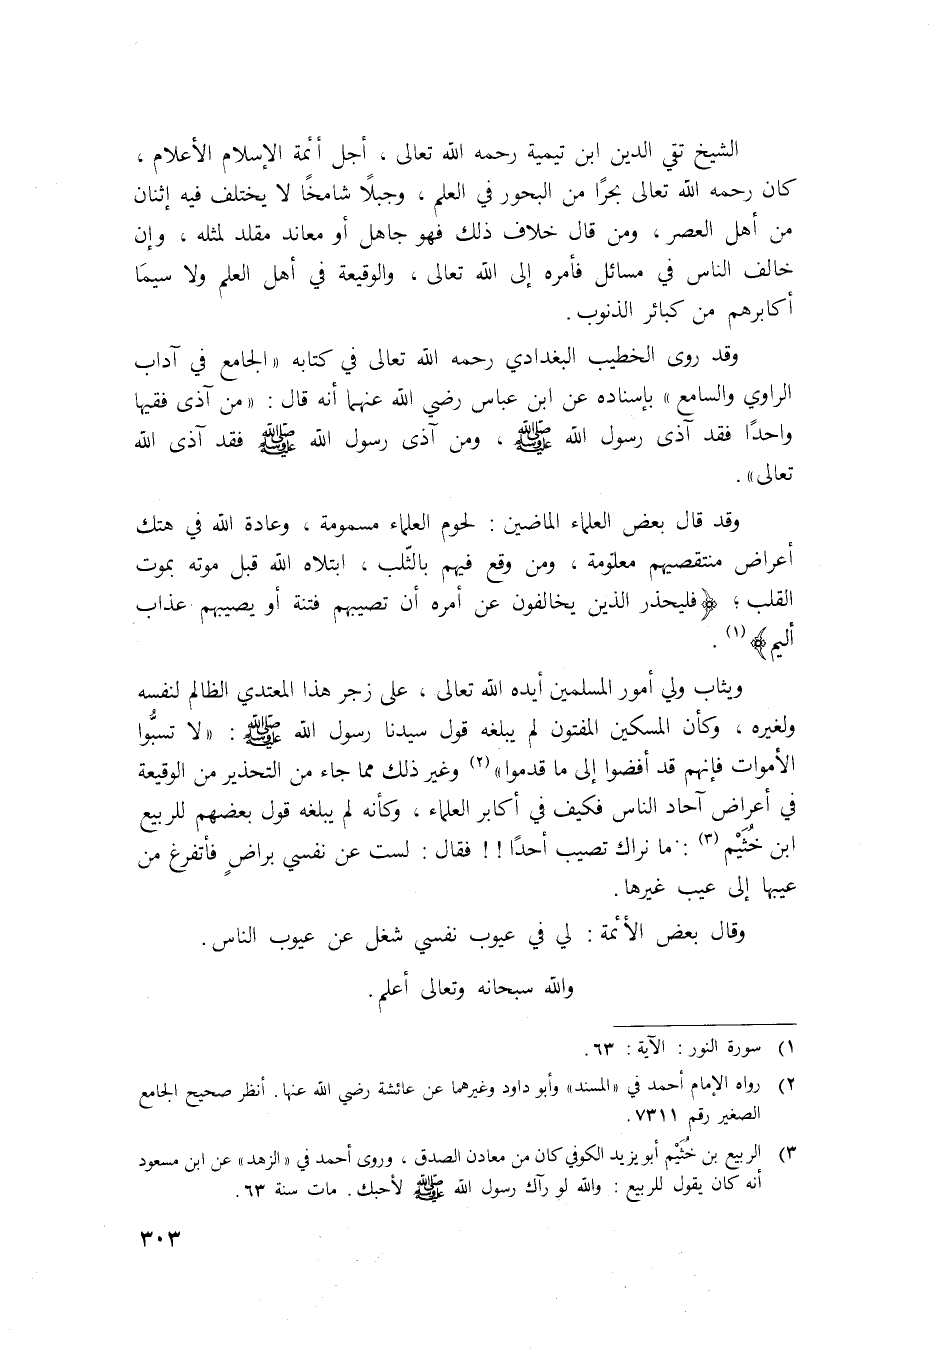 الشيخ تقي الدين ابن تيمية رحمه الله تعالى ، أجل أئمة الإسلام الأعلام ،
كان رحمه الله تعالى بحرًا من البحور في العلم ، وجبلًا شامخًا لا يختلف فيه إثنان
من أهل العصر ، ومن قال خلاف ذلك فهو جاهل أو معاند مقلد لمثله ، وإن
خالف الناس في مسائل فأمره إلى الله تعالى ، والوقيعة في أهل العلم ولا سيمَا
أكابرهم من كبائر الذنوب .
وقد روى الخطيب البغدادي رحمه الله تعالى في كتابه «الجامع في آداب
الراوي والسامع» بإسناده عن ابن عباس رضي الله عنهما أنه قال : «من آذى فقيها
واحدًا فقد آذى رسول الله ﷺ ، ومن آذى رسول الله ﷺ فقد آذى الله
تعالى» .
وقد قال بعض العلماء الماضين : لحوم العلماء مسمومة ، وعادة الله في هتك
أعراض منتقصيهم معلومة ، ومن وقع فيهم بالثّلب ، ابتلاه الله قبل موته بموت
القلب ؛ ﴿فليحذر الذين يخالفون عن أمره أن تصيبهم فتنة أو يصيبهم عذاب
أليم﴾(١) .
ويثاب ولي أمور المسلمين أيده الله تعالى ، على زجر هذا المعتدي الظالم لنفسه
ولغيره ، وكأن المسكين المفتون لم يبلغه قول سيدنا رسول الله ﷺ : «لا تسبُّوا
الأموات فإنهم قد أفضوا إلى ما قدموا»(٢) وغير ذلك مما جاء من التحذير من الوقيعة
في أعراض آحاد الناس فكيف في أكابر العلماء ، وكأنه لم يبلغه قول بعضهم للربيع
ابن خُثَيْم(٣) : ما نراك تصيب أحدًا !! فقال : لست عن نفسي براضٍ فأتفرغ من
عيبها إلى عيب غيرها .
وقال بعض الأئمة : لي في عيوب نفسي شغل عن عيوب الناس .
والله سبحانه وتعالى أعلم .
١) سورة النور : الآية : ٦٣ .
٢) رواه الإمام أحمد في «المسند» وأبو داود وغيرهما عن عائشة رضي الله عنها . أنظر صحيح الجامع
الصغير رقم ٧٣١١ .
٣) الربيع بن خُثَيْم أبو يزيد الكوفي كان من معادن الصدق ، وروى أحمد في «الزهد» عن ابن مسعود
أنه كان يقول للربيع : والله لو رآك رسول الله ﷺ لأحبك . مات سنة ٦٣ .
٣٠٣